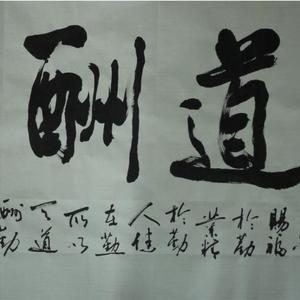 道酬
賜福
於勤
業精
於勤
人健
在勤
所以
天道
酬勤